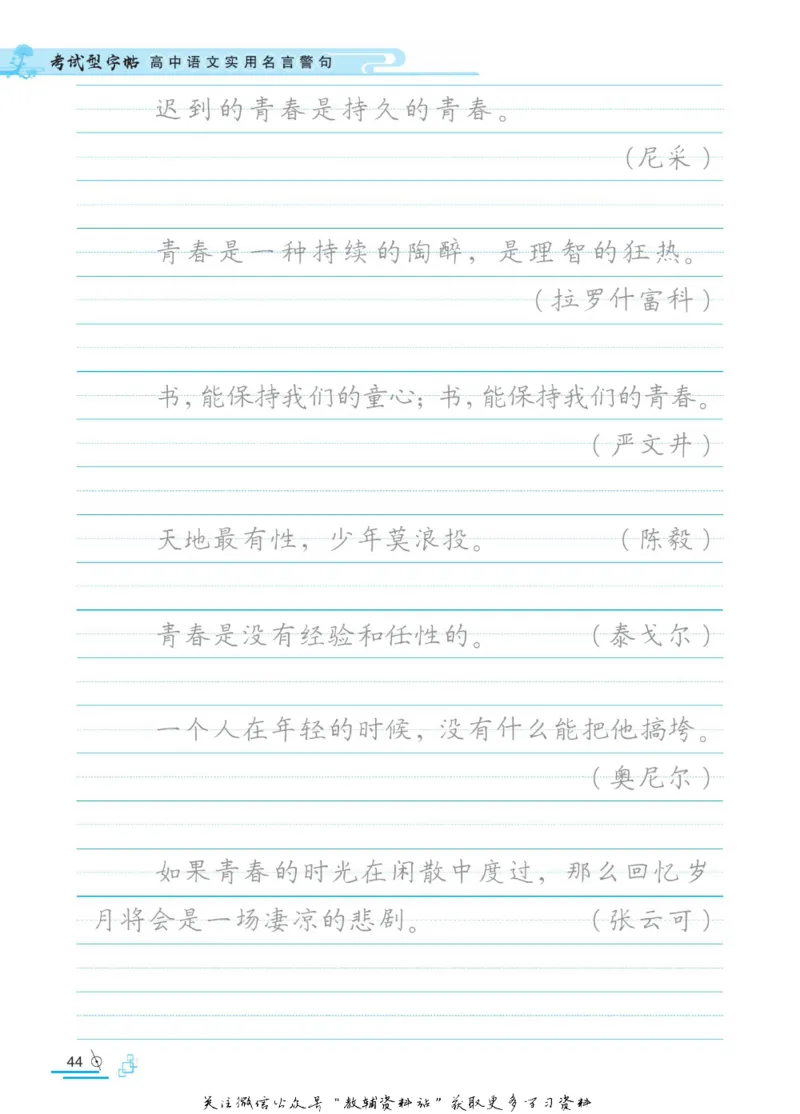 考试型字帖 高中语文实用名言警句
迟到的青春是持久的青春。
（尼采）
青春是一种持续的陶醉，是理智的狂热。
（拉罗什富科）
书，能保持我们的童心；书，能保持我们的青春。
（严文井）
天地最有性，少年莫浪投。 （陈毅）
青春是没有经验和任性的。 （泰戈尔）
一个人在年轻的时候，没有什么能把他搞垮。
（奥尼尔）
如果青春的时光在闲散中度过，那么回忆岁
月将会是一场凄凉的悲剧。 （张云可）
44
关注微信公众号“教辅资料站”获取更多学习资料